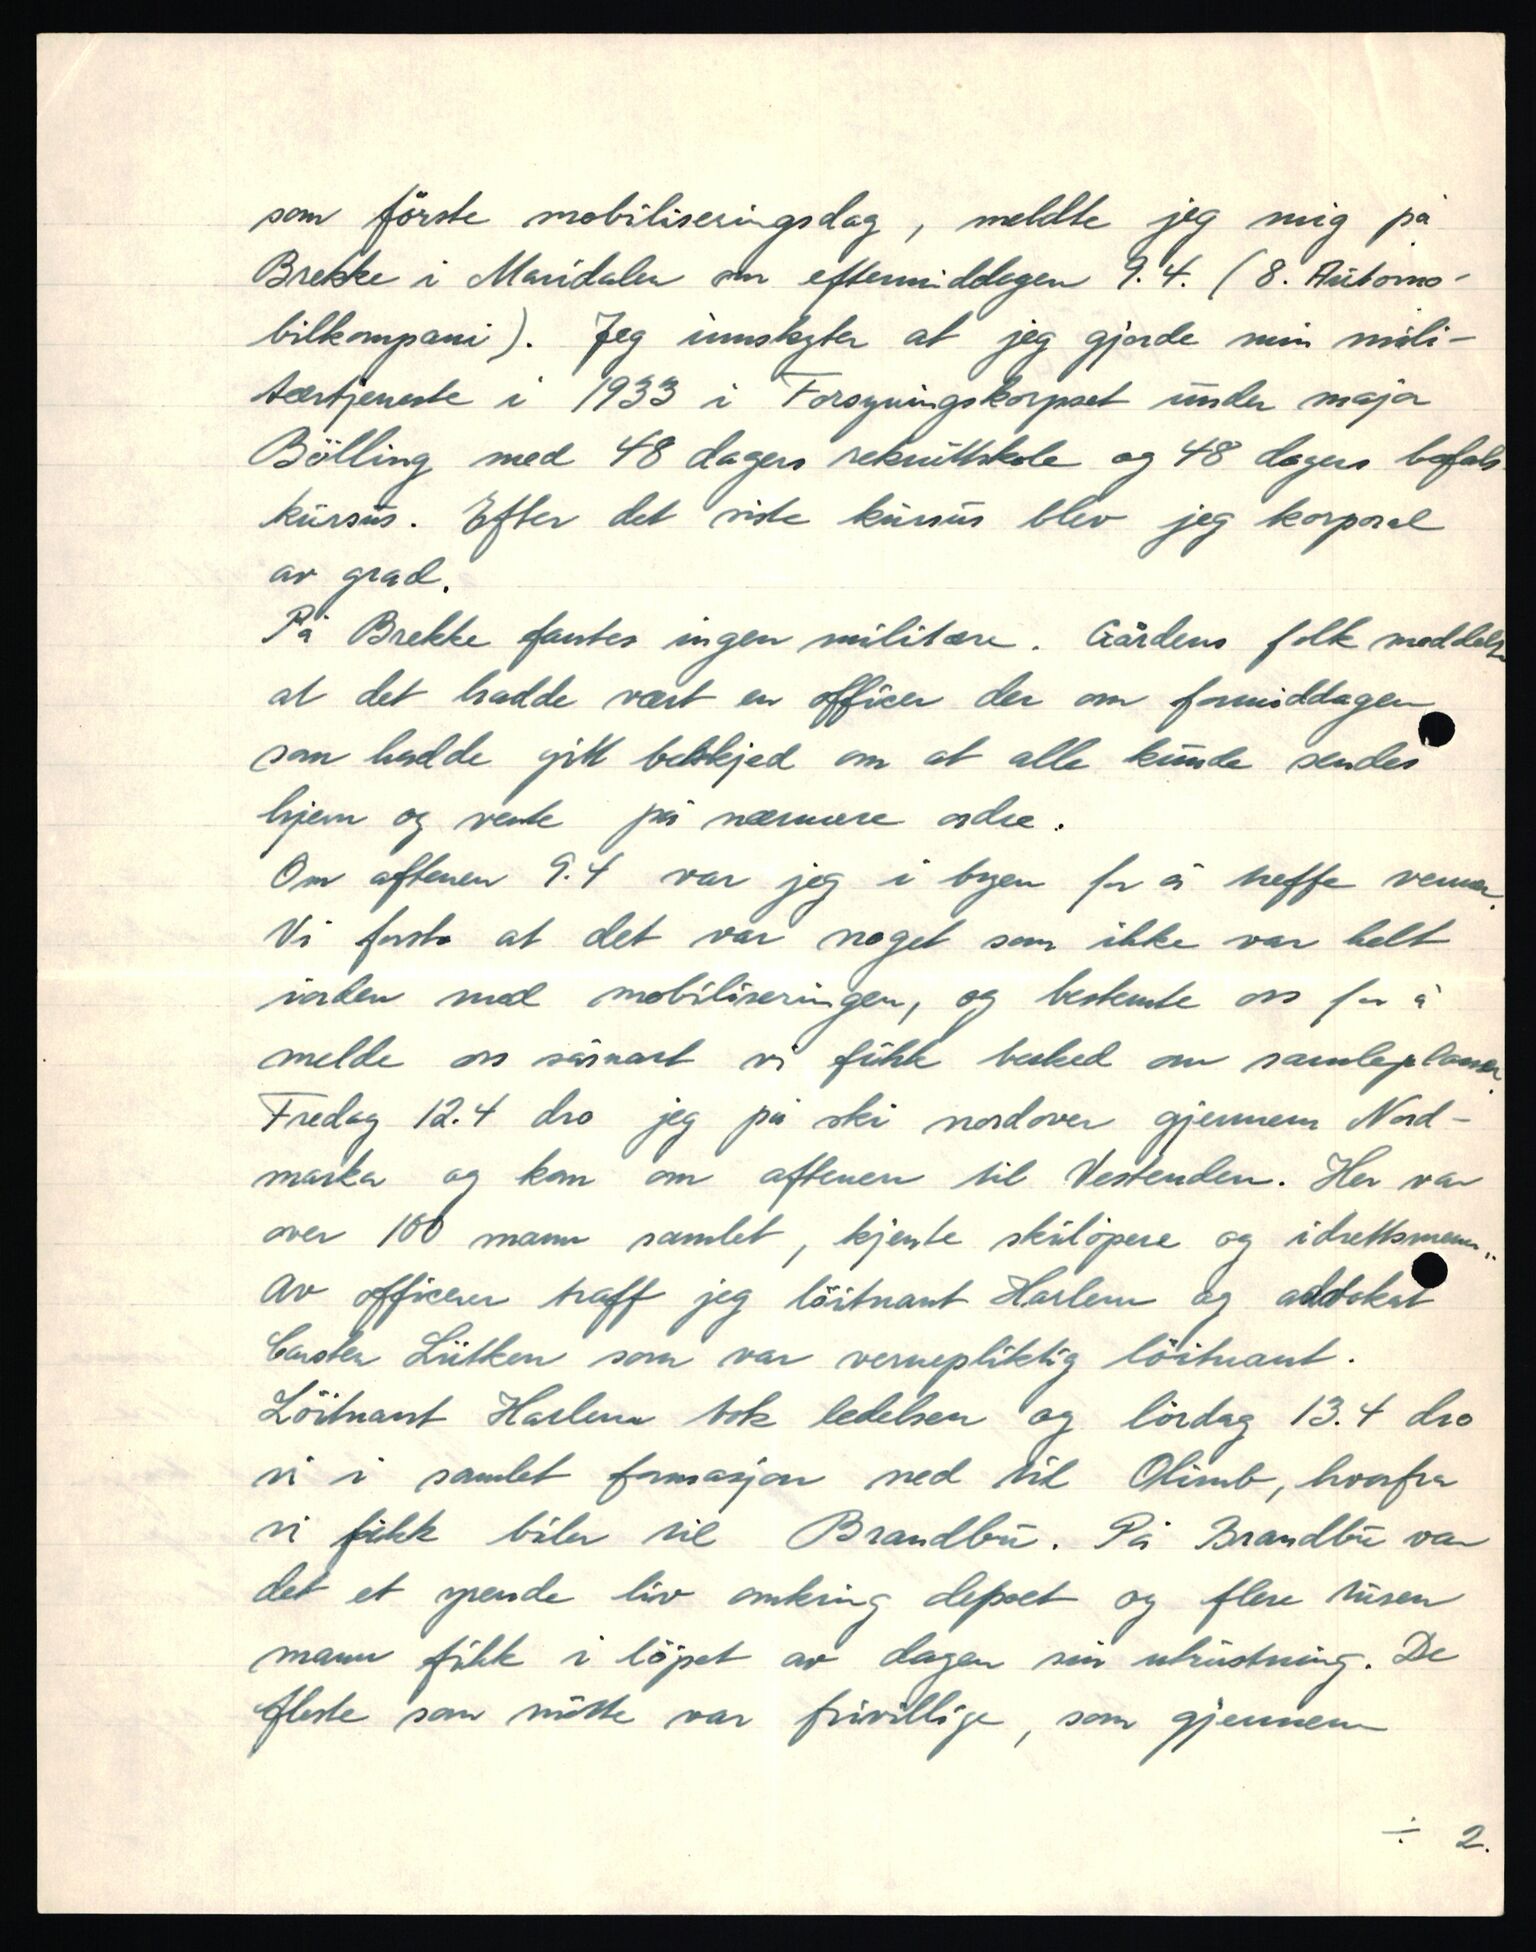 som förste mobiliseringsdag, meldte jeg mig på
Brekke i Maridalen om eftermiddagen 9.4. (8. Automo-
bilkompani). Jeg innskyter at jeg gjorde min mili-
tærtjeneste i 1933 i Forsyningskorpset under major
Bölling med 48 dagers rekruttskole og 48 dagers befals
kursus. Efter det siste kursus blev jeg korporal
av grad.
På Brekke fantes ingen militære. Gårdens folk meddelte
at det hadde vært en officer der om formiddagen
som hadde gitt beskjed om at alle kunde sendes
hjem og vente på nærmere ordre.
Om aftenen 9.4 var jeg i byen for å treffe venner.
Vi forsto at det var noget som ikke var helt
iorden med mobiliseringen, og bestemte oss for å
melde oss såsnart vi fikk besked om samleplasser.
Fredag 12.4 dro jeg på ski nordover gjennem Nord-
marka og kom om aftenen til Vestenden. Her var
over 100 mann samlet, kjente skilöpere og idrettsmenn.
Av officerer traff jeg löitnant Harlem og advokat
Carsten Lütken som var vernepliktig löitnant.
Löitnant Harlem tok ledelsen og lördag 13.4 dro
vi i samlet formasjon ned til Olimb, hvorfra
vi fikk biler til Brandbu. På Brandbu var
det et yrende liv omkring depoet og flere tusen
mann fikk i löpet av dagen sin utrustning. De
fleste som mötte var frivillige, som gjennem
÷ 2.